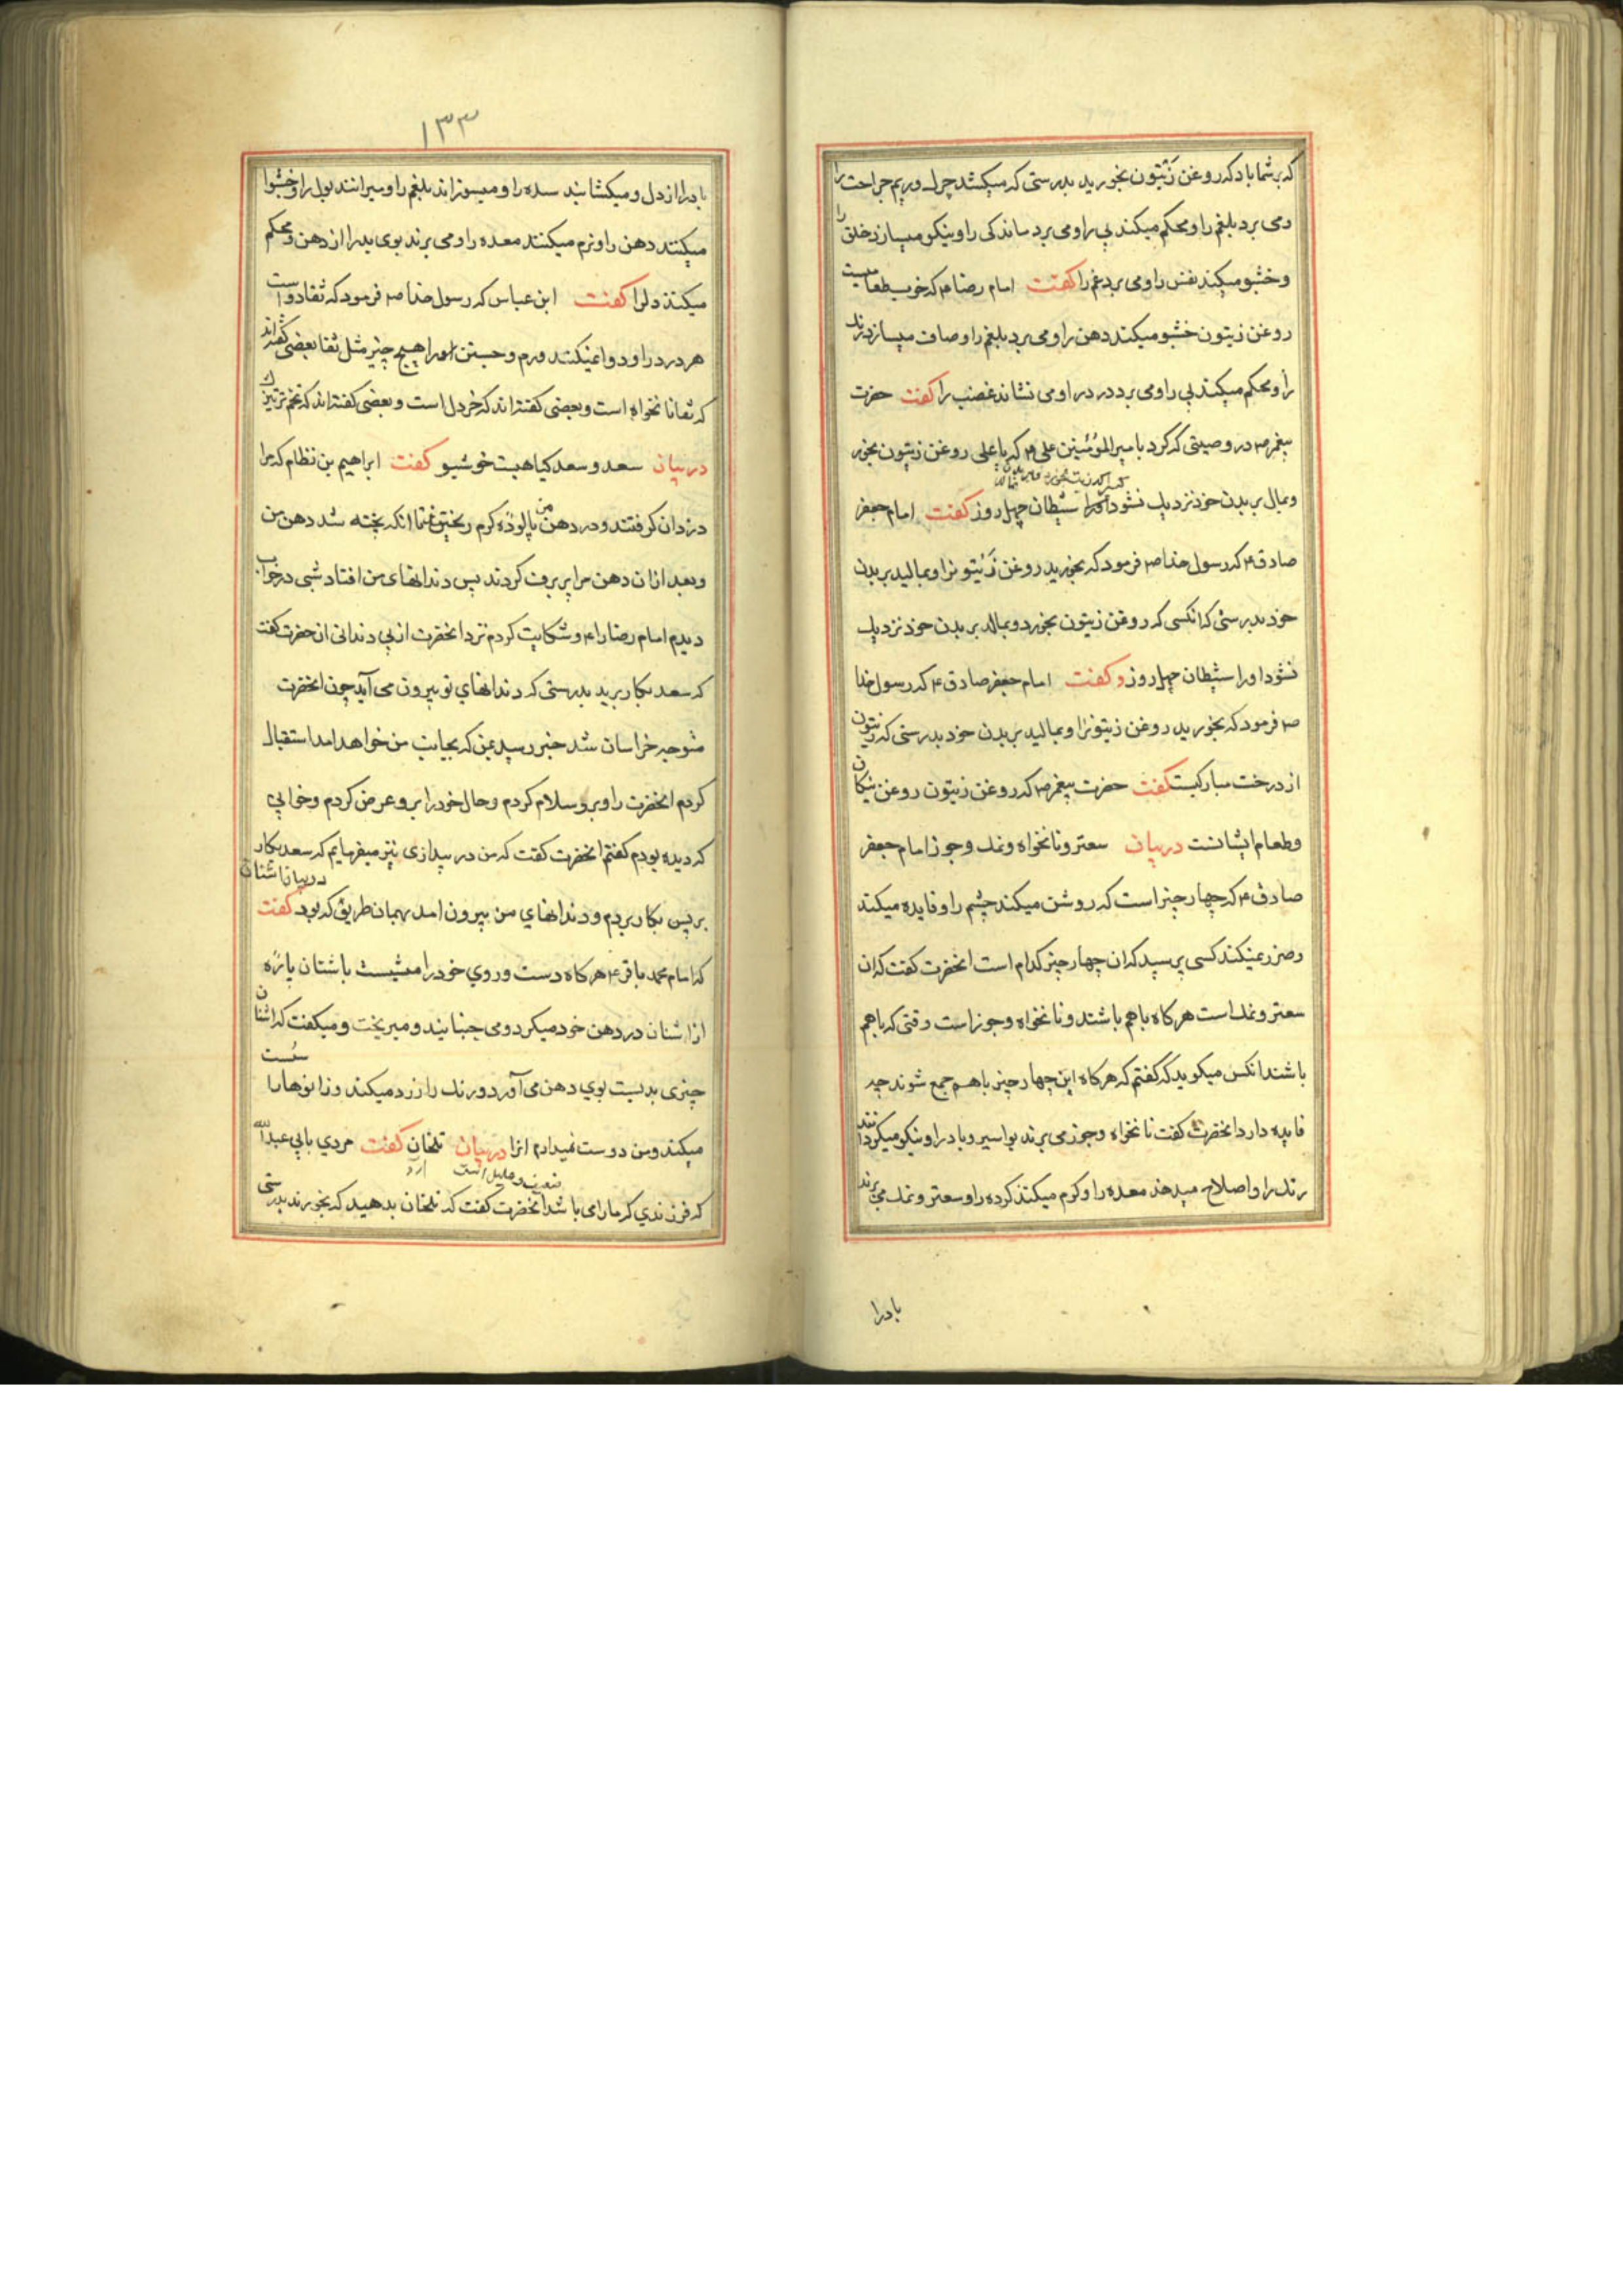 که بر شما باد که روغن زَیْتون بخورید بدرستی که میکشد چرک و ریم جراحت را
و می برد بلغم را و محکم میکند پی را و می برد ماندکی را و نیکو میسازد خلق را
و خشبو میکند نفس را و می برد غم را کفت امام رضا ۴ که خوب طعامیست
روغن زیتون خشبو میکند دهن را و می برد بلغم را و صاف میسازد رنک
را و محکم میکند پی را و می برد درد را و می نشاند غضب را کفت حضرت
پیغمبر ص در وصیتی که کرد بامیرالمؤمنین علی ۴ که یا علی روغن زیتون بخور
و بمال بر بدن خود نزدیک نشود او را شیطان چهل روز کفت امام جعفر
صادق ۴ که رسول خدا ص فرمود که بخورید روغن زَیْتون را و بمالید بر بدن
خود بدرستی که انکسی که روغن زیتون بخورد و بمالد بر بدن خود نزدیک
نشود او را شیطان چهل روز و کفت امام جعفر صادق ۴ که رسول خدا
ص فرمود که بخورید روغن زیتون را و بمالید بر بدن خود بدرستی که زیتون
از درخت مبارکیست کفت حضرت پیغمبر ص که روغن زیتون روغن نیکان
و طعام ایشانست در بیان سعتر و نانخواه و نمک و جوز امام جعفر
صادق ۴ که چهار چیز است که روشن میکند چشم را و فایده میکند
و ضرر نمیکند کسی پرسید که ان چهار چیز کدام است انحضرت کفت که ان
سعتر و نمک است هر کاه با هم باشند و نانخواه و جوز است وقتی که با هم
باشند انکس میکوید که کفتم که هر کاه این چهار چیز با هم جمع شوند چه
فایده دارد انحضرت کفت نانخواه و جوز می برند بواسیر و باد را و نیکو میکردانند
رنک را و اصلاح میدهند معده را و کرم میکنند کرده را و سعتر و نمک می برند
بادرا
۱۳۳
باد را از دل و میکشایند سده را و میسوزانند بلغم را و میرانند بول را و خشبوا
میکنند دهن را و نرم میکنند معده را و می برند بوی بد را از دهن و محکم
میکنند دلرا کفت ابن عباس که رسول خدا ص فرمود که ثفا دواست
هر درد را و دوا نمیکند ورم و جستن او را هیچ چیز مثل ثفا بعضی کفته اند
که ثفا نانخواه است و بعضی کفته اند که خردل است و بعضی کفته اند که تخم ترتیزک
در بیان سعد و سعد کیاهیست خوشبو کفت ابراهیم بن نظام که مرا
دزدان کرفتند و در دهن من پالوده کرم ریختند تا انکه پخته شد دهن من
و بعد ازان دهن مرا پر برف کردند پس دندانهای من افتاد شبی در خواب
دیدم امام رضا را ۴ و شکایت کردم نزد انحضرت از بی دندانی ان حضرت کفت
که سعد بکار برید بدرستی که دندانهای تو بیرون می آید چون انحضرت
متوجه خراسان شد خبر رسید بمن که بجانب من خواهد امد استقبال
کردم انحضرت را و برو سلام کردم و حال خود را برو عرض کردم و خوابی
که دیده بودم کفتم انحضرت کفت که من در بیداری نیز میفرمایم که سعد بکار
بر پس بکار بردم و دندانهای من بیرون امد بهمان طریق که بود در بیان اشنان کفت
که امام محمد باقر ۴ هر کاه دست و روی خود را میشست باشنان پارّه
از اشنان در دهن خود میکرد و می جنبانید و میریخت و میکفت که اشنان
چیزی بدیست بوی دهن می آورد و رنک را زرد میکند و زانوها را سُست
میکند و من دوست نمیدارم انرا در بیان تلخان کفت مردی بابی عبدالله
که فرزندی که ما را می باشد ضعیف و علیل است انحضرت کفت که تلخان بدهید که بخورند بدرستی